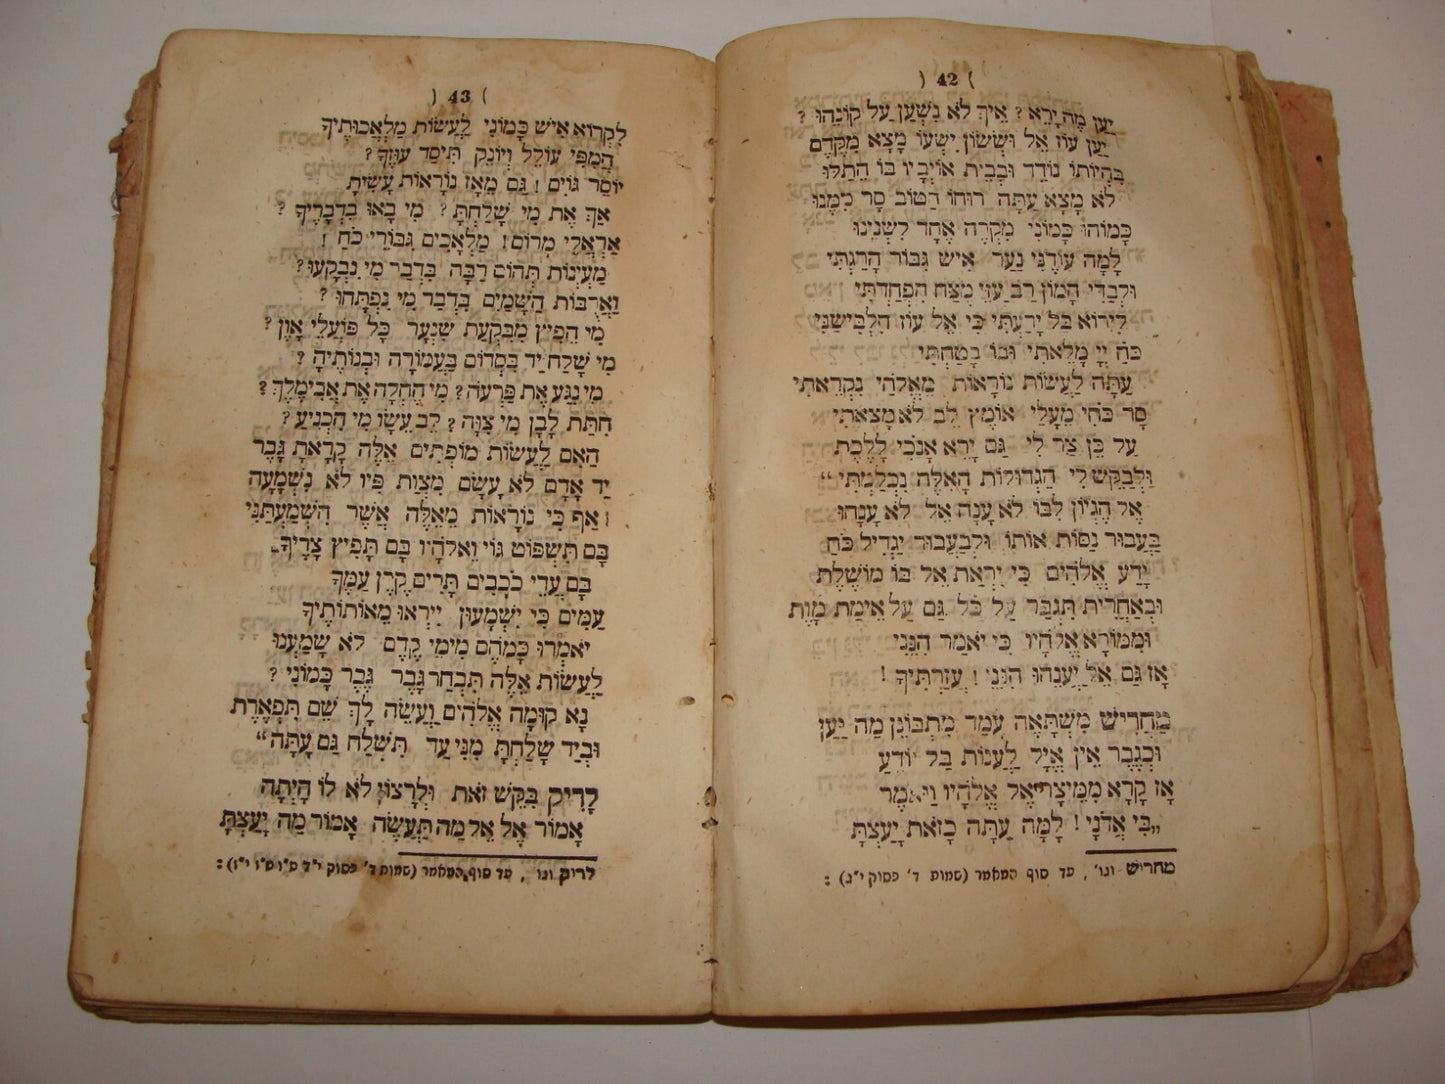 ( 42 )
יַעַן מֶה יָרֵא? אֵיךְ לֹא נִשְׁעַן עַל קוֹנֵהוּ?
יַעַן עוֹז אֵל וּשְׂשׂוֹן יִשְׁעוֹ מָצָא מִקֶּדֶם
בִּהְיוֹתוֹ נוֹדֵד וּבְבֵית אוֹיְבָיו בּוֹ הֵתֵלּוּ
לֹא מָצָא עַתָּה רוּחוֹ הַטּוֹב סָר מִמֶּנּוּ
כָּמוֹהוּ כָּמוֹנִי מִקְרֶה אֶחָד לִשְׁנֵינוּ
לָמָּה עוֹדֶנִּי נַעַר אִישׁ גִּבּוֹר הָרַגְתִּי
וּלְבַדִּי הָמוֹן רַב עַזֵּי מֵצַח הִפְחַדְתִּי
לִירוֹא בַּל יָדַעְתִּי כִּי אֵל עוֹז הִלְבִּישַׁנִי
כֹּחַ יְיָ מָלֵאתִי וּבוֹ בָּטָחְתִּי
עַתָּה לַעֲשׂוֹת נוֹרָאוֹת מֵאֱלֹהַי נִקְרֵאתִי
סָר כֹּחִי מֵעָלַי אוֹמֶץ לֵב לֹא מָצָאתִי
עַל כֵּן צַר לִי גַּם יָרֵא אָנֹכִי לָלֶכֶת
וּלְבַקֵּשׁ לִי הַגְּדוֹלוֹת הָאֵלֶּה נִכְלַמְתִּי“
אֶל הֶגְיוֹן לִבּוֹ לֹא עָנָה אֵל לֹא עָנָהוּ
בַּעֲבוּר נַסּוֹת אוֹתוֹ וּלְבַעֲבוּר יַגְדִּיל כֹּחַ
יָדַע אֱלֹהִים כִּי יִרְאַת אֵל בּוֹ מוֹשֶׁלֶת
וּבְאַחֲרִית תִּגְבַּר עַל כֹּל גַּם עַל אֵימַת מָוֶת
וּמִמּוֹרָא אֱלֹהָיו כִּי יֹאמַר הִנֵּנִי
אָז גַּם אֵל יַעֲנֵהוּ הִנֵּנִי! עֲזַרְתִּיךָ!
מַחֲרִישׁ מִשְׁתָּאֶה עָמַד מִתְבּוֹנֵן מַה יַּעַן
וּכְגֶבֶר אֵין אֱיָל לַעֲנוֹת בַּל יוֹדֵעַ
אָז קָרָא מִמֵּיצַר אֶל אֱלֹהָיו וַיֹּאמֶר
„בִּי אֲדֹנָי! לָמָּה עַתָּה כָזֹאת יָעַצְתָּ
מחריש וגו׳, עד סוף המאמר (שמות ד׳ פסוק י״ג):
( 43 )
לִקְרוֹא אִישׁ כָּמוֹנִי לַעֲשׂוֹת מַלְאֲכוּתֶיךָ
הֲמִפִּי עוֹלֵל וְיוֹנֵק תִּיסַּד עוּזֶּךָ?
יוֹסֵר גּוֹיִם! גַּם מֵאָז נוֹרָאוֹת עָשִׂיתָ
אַךְ אֶת מִי שָׁלַחְתָּ? מִי בָאוּ בִדְבָרֶיךָ?
אֶרְאֶלֵּי מָרוֹם! מַלְאָכִים גִּבּוֹרֵי כֹחַ!
מַעְיְנוֹת תְּהוֹם רַבָּה בִּדְבַר מִי נִבְקָעוּ?
וַאֲרֻבּוֹת הַשָּׁמַיִם בִּדְבַר מִי נִפְתָּחוּ?
מִי הֵפִיץ מִבִּקְעַת שִׁנְעָר כָּל פּוֹעֲלֵי אָוֶן?
מִי שָׁלַח יַד בִּסְדוֹם בַּעֲמוֹרָה וּבְנוֹתֶיהָ?
מִי נִגַּע אֶת פַּרְעֹה? מִי הֶחֱלָה אֶת אֲבִימֶלֶךְ?
חִתַּת לָבָן מִי צִוָּה? לֵב עֵשָׂו מִי הִכְנִיעַ?
הַאִם לַעֲשׂוֹת מוֹפְתִים אֵלֶּה קָרָאתָ גָּבֶר
יַד אָדָם לֹא עָשָׂם מִצְוַת פִּיו לֹא נִשְׁמָעָה
אַף כִּי נוֹרָאוֹת מֵאֵלֶּה אֲשֶׁר הִשְׁמַעְתַּנִי
בָּם תִּשְׁפּוֹט גּוֹי וֵאלֹהָיו בָּם תָּפִיץ צָרֶיךָ
בָּם עֲדֵי כֹכָבִים תָּרִים קֶרֶן עַמֶּךָ
עַמִּים כִּי יִשְׁמָעוּן יִירְאוּ מֵאוֹתוֹתֶיךָ
יֹאמְרוּ כָּמֹהֶם מִימֵי קֶדֶם לֹא שָׁמָעְנוּ
לַעֲשׂוֹת אֵלֶּה תִּבְחַר גָּבֶר גֶּבֶר כָּמוֹנִי?
נָא קוּמָה אֱלֹהִים וַעֲשֵׂה לָךְ שֵׁם תִּפְאֶרֶת
וּבְיַד שָׁלַחְתָּ מִנִּי עַד תִּשְׁלַח גַּם עָתָּה“
לָרִיק בִּקֵּשׁ זֹאת וּלְרָצוֹן לֹא לוֹ הָיְתָה
אָמוֹר אֶל אֵל מַה תַּעֲשֶׂה אָמוֹר מַה יָּעַצְתָּ
לריק וגו׳, עד סוף המאמר (שמות ד׳ פסוק י״ד ט״ו ט״ז י״ז):